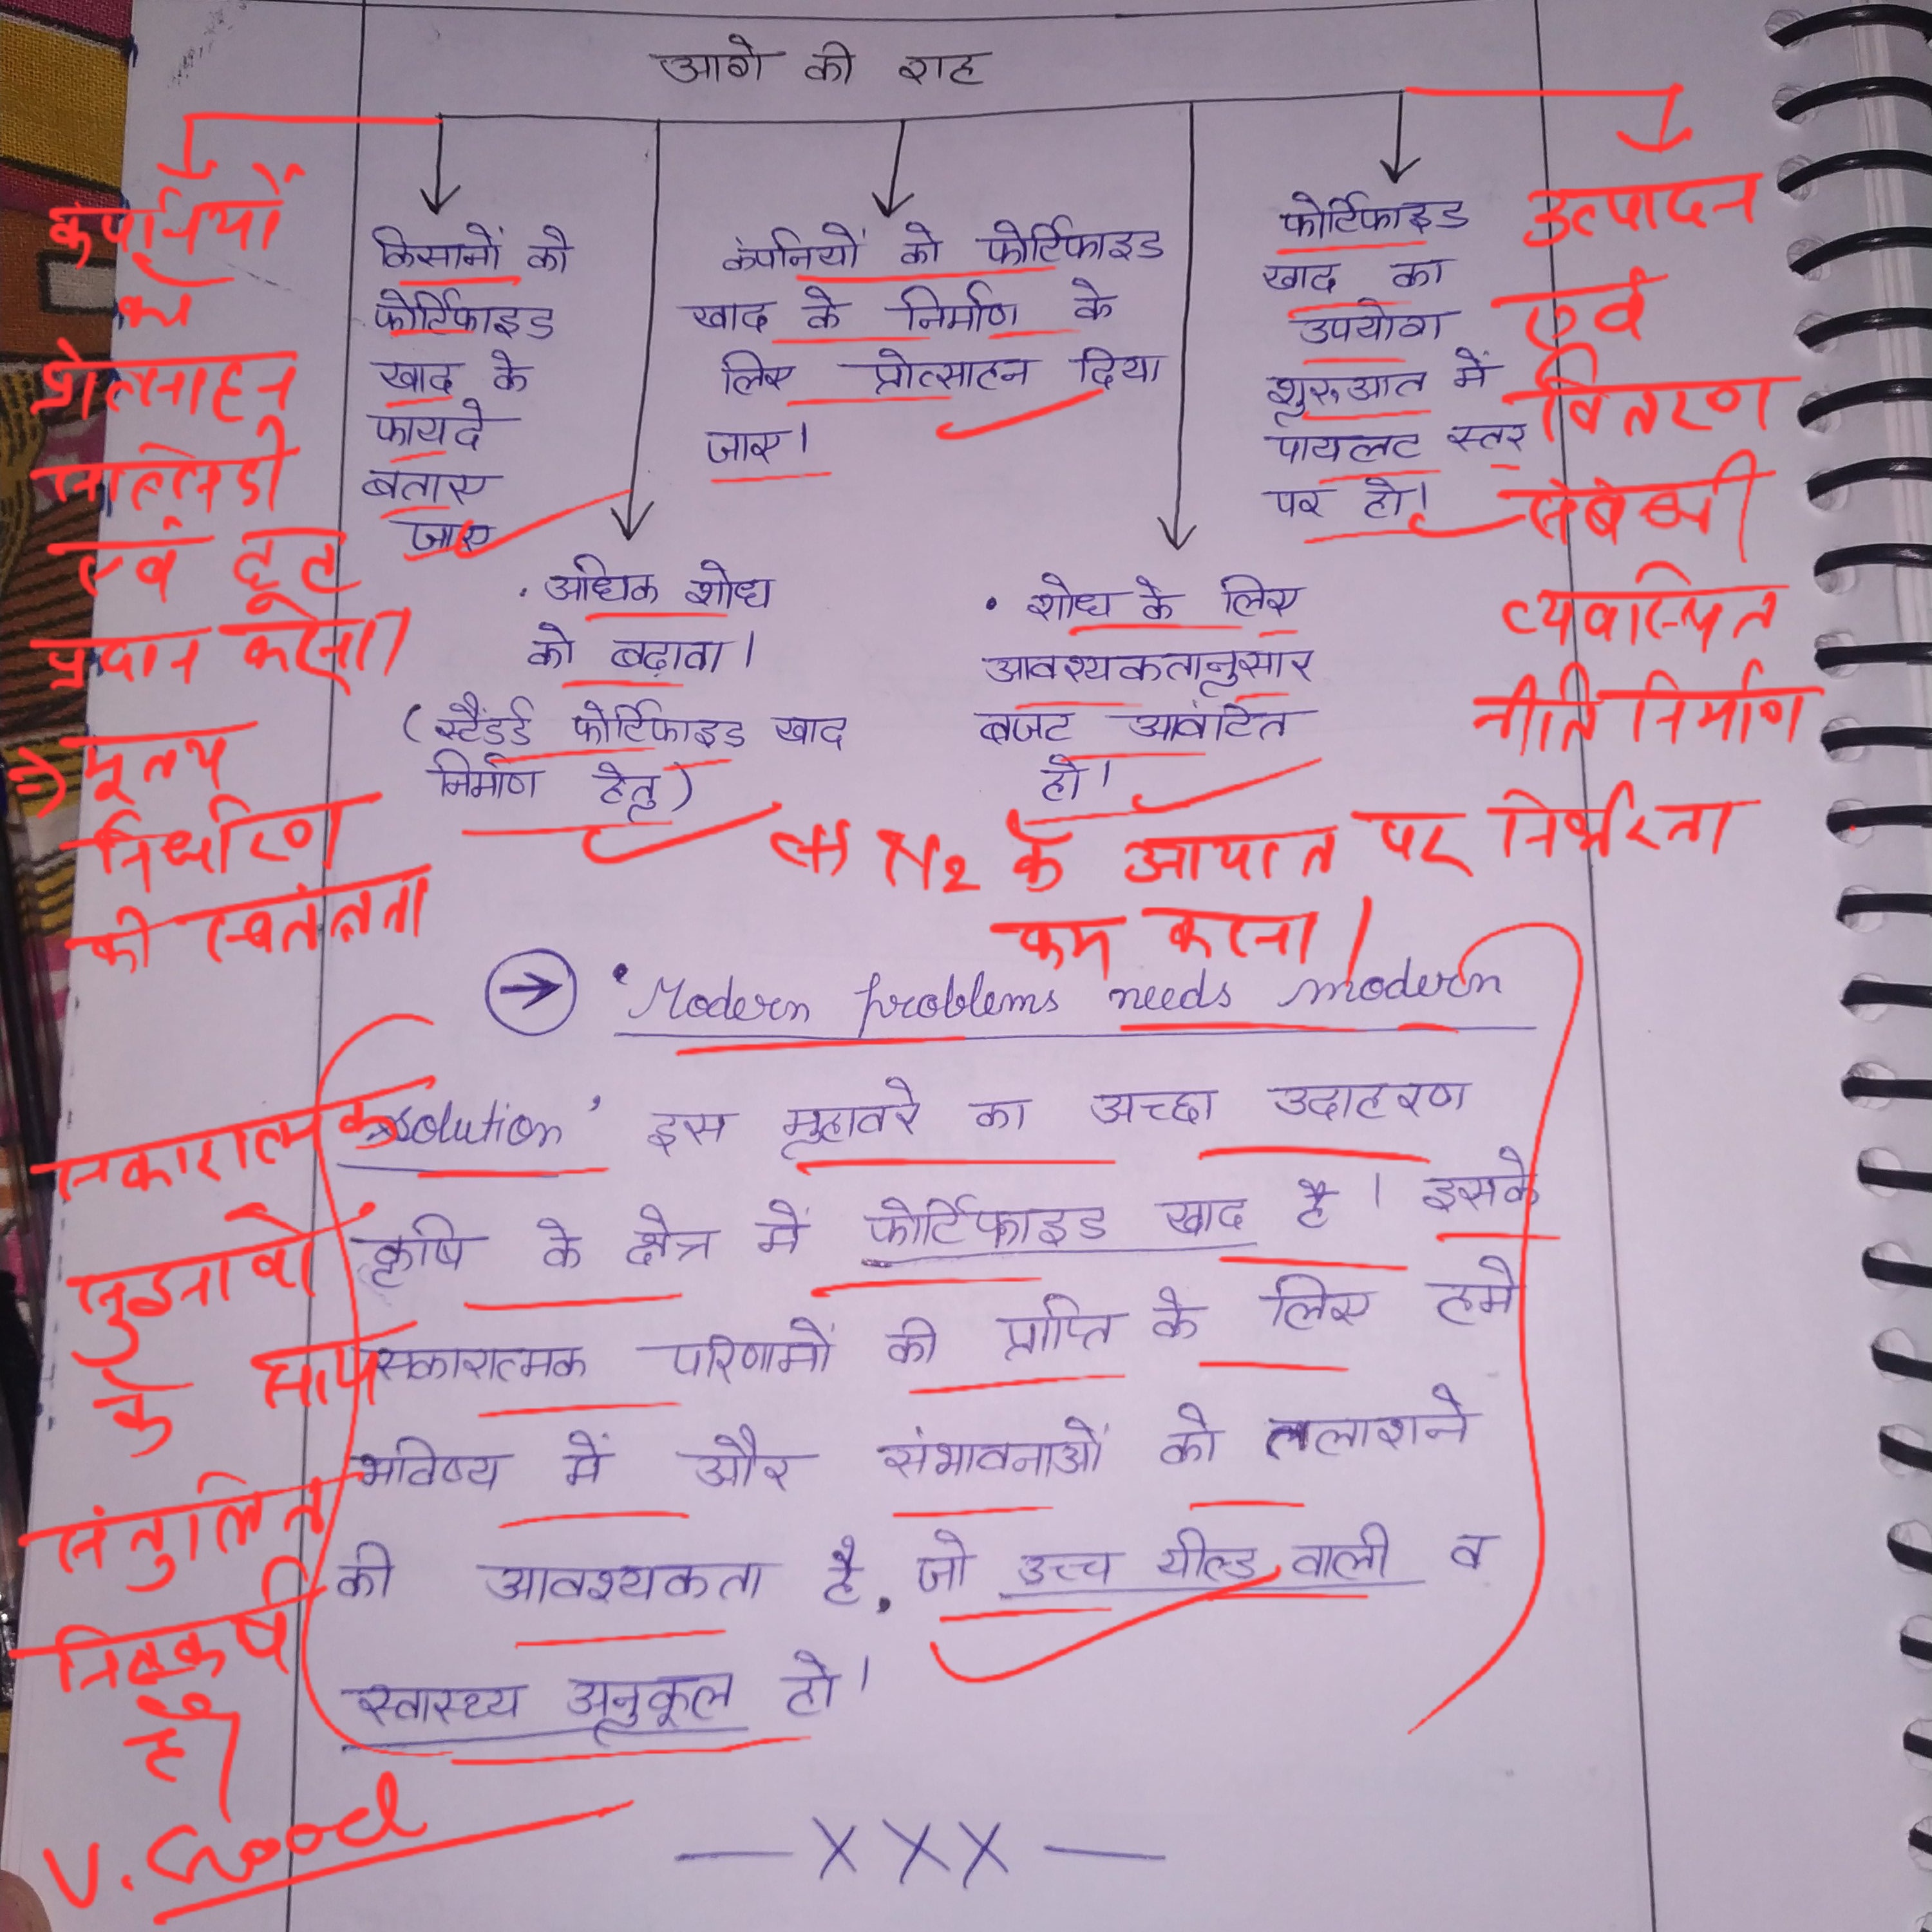 आगे की राह
किसानों को
फोर्टिफाइड
खाद के
फायदे
बताए
जाए
कंपनियों को फोर्टिफाइड
खाद के निर्माण के
लिए प्रोत्साहन दिया
जाए।
फोर्टिफाइड
खाद का
उपयोग
शुरुआत में
पायलट स्तर
पर हो।
• अधिक शोध
को बढ़ावा।
(स्टैंडर्ड फोर्टिफाइड खाद
निर्माण हेतु)
• शोध के लिए
आवश्यकतानुसार
बजट आवंटित
हो।
कंपनियों
को
प्रोत्साहन
सब्सिडी
एवं छूट
प्रदान करना।
⇒ मूल्य
निर्धारण
की स्वतंत्रता
उत्पादन
एवं
वितरण
संबंधी
व्यवस्थित
नीति निर्माण
N₂ के आयात पर निर्भरता
कम करना।
→ 'Modern problems needs modern
solution' इस मुहावरे का अच्छा उदाहरण
कृषि के क्षेत्र में फोर्टिफाइड खाद है। इसके
सकारात्मक परिणामों की प्राप्ति के लिए हमे
भविष्य में और संभावनाओं को तलाशने
की आवश्यकता है, जो उच्च यील्ड वाली व
स्वास्थ्य अनुकूल हो।
सकारात्मक
सुझावों
के साथ
संतुलित
निष्कर्ष
है।
V. Good
— X X X —